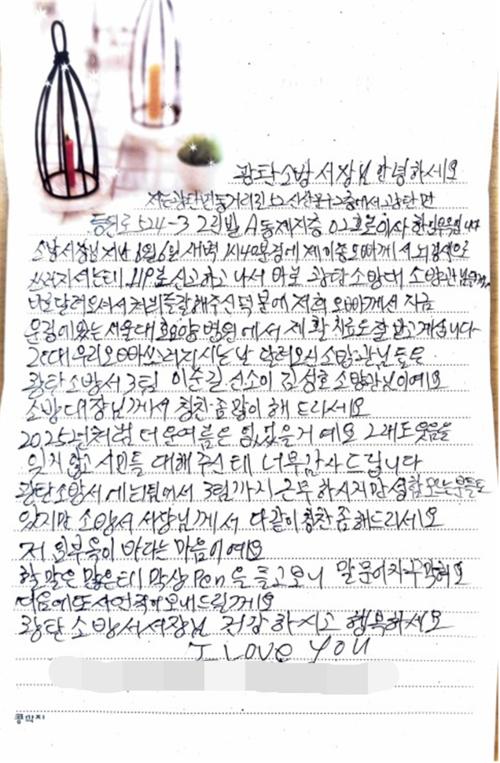 광탄소방서장님 안녕하세요
저는 광탄면
등원로 524-3 2리빌 A동 제지층 02호로 이사
소방서장님 지난 8월 6일 새벽 1시 40분경에 제 이종오빠께서 뇌경색으로
쓰러지셔는데 119로 신고하고 나서 바로 광탄소방대 소방관님
바로 달려오셔서 처치를 잘 해주신 덕분에 저희 오빠께서 지금
문경에 있는 서울대효요양병원에서 재활치료도 잘 받고 계십니다
그런데 우리오빠 쓰러지시는 날 달려오신 소방관님들도
광탄소방서 3팀 이순길 선소이 김성호 소방관님이예요
소방대장님께서 칭찬좀 많이 해 드리세요
2025년처럼 더운여름은 있을거예요 그래도 웃음을
잊지않고 시민들 대해주신데 너무 감사드립니다
광탄소방서에 1팀에서 3팀까지 근무하시지만 성함 모르는분들도
있지만 소방서 서장님께서 다같이 칭찬좀 해드리세요
저 임부옥이 바라는 마음이예요
할 말은 많은데 막상 Pen을 들고보니 말문이
다음에 또 사연 적어 보내드릴께요
광탄소방서서장님 건강하시고 행복하세요
I LOVE YOU
콩깍지